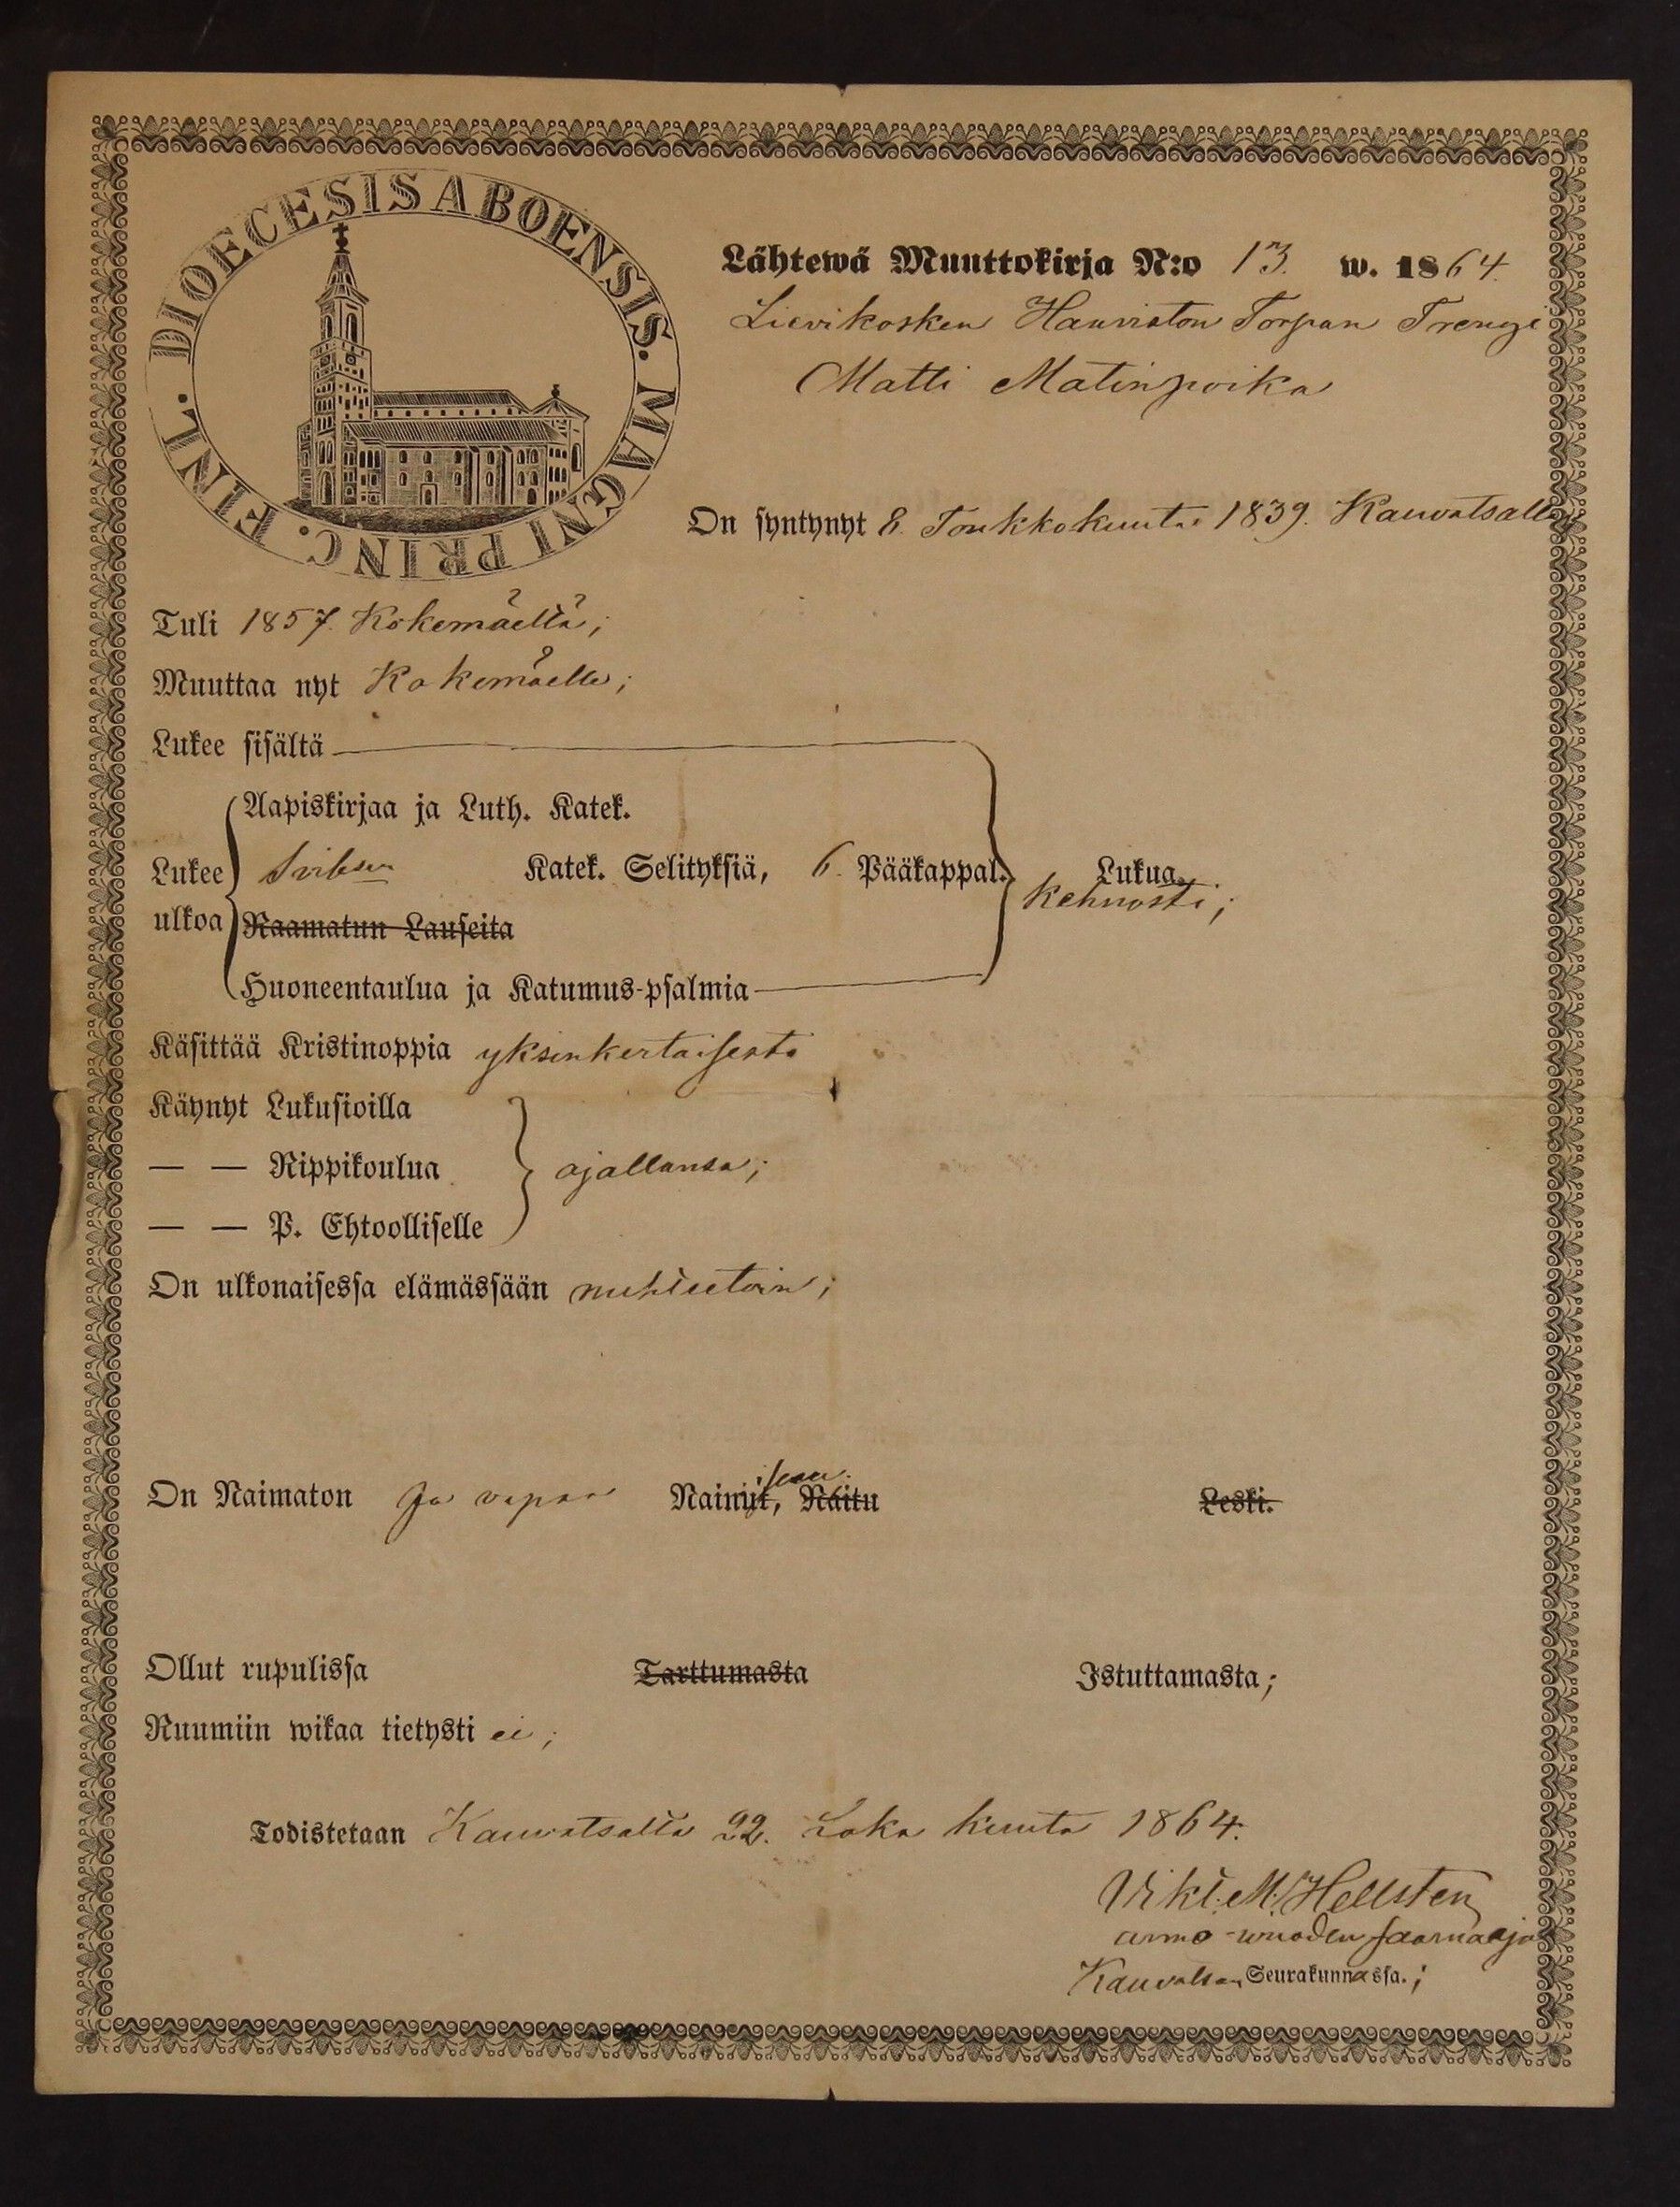 DIOECESIS ABOENSIS. MAGNI PRINC. FINL.
Lähtewä Muuttokirja N:o 13. w. 1864.
Lievikosken Torpan Trengi
Matti Matinpoika
On syntynyt 8. Toukkokuuta 1839. Kauvatsalla
Tuli 1857. Kokemäeltä;
Muuttaa nyt Kokemäelle;
Lukee sisältä
Aapiskirjaa ja Luth. Katek.
Lukee Katek. Selityksiä, 6. Pääkappal. Lukua.
kehnosti;
ulkoa Raamatun Lauseita
Huoneentaulua ja Katumus-psalmia
Käsittää Kristinoppia yksinkertaisesti
Käynyt Lukusioilla
— — Rippikoulua ajallansa;
— — P. Ehtoolliselle
On ulkonaisessa elämässään nuhteetoin;
On Naimaton ja vapaa Naimi, Naitu Leski.
Ollut rupulissa Tarttumasta Istuttamasta;
Ruumiin wikaa tietysti ei;
Todistetaan Kauvatsalla 22. Lokakuuta 1864.
M. Hellsten
armo-wuoden saarnaaja
Kauvatsan Seurakunnassa.;